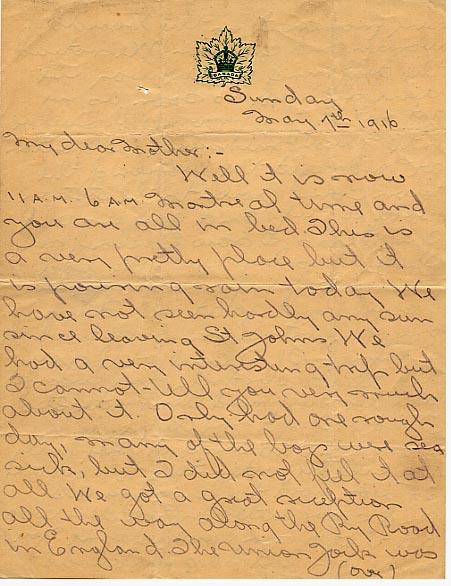 Sunday
May 7th 1916
My dear Mother:-
Well it is now
11 A.M. 6 A.M. Montreal time and
you are all in bed. This is
a very pretty place but it
is pouring rain today. We
have not seen hardly any sun
since leaving St Johns. We
had a very interesting trip but
I cannot tell you very much
about it. Only had one rough
day, many of the boys were sea
sick, but I did not feel it at
all. We got a great reception
all the way along the Ry Road
in England. The Union Jack was
(over)